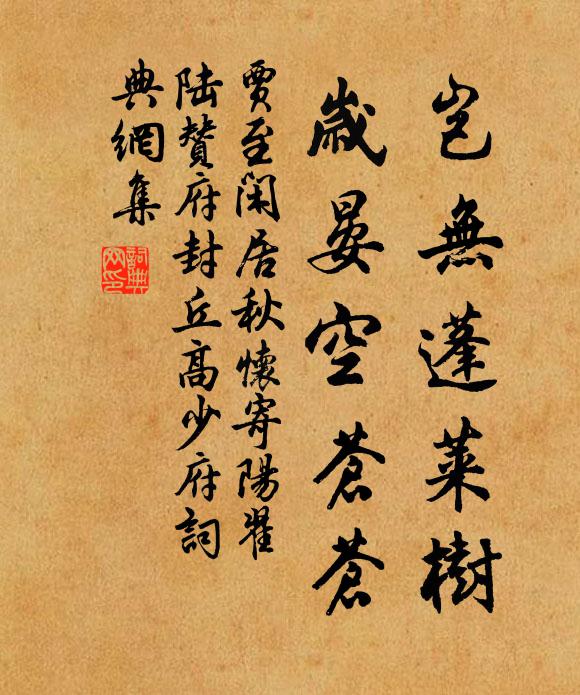 豈無蓬萊樹
歲晏空蒼蒼
賈至閑居秋懷寄陽翟
陸贊府封丘高少府詞
典網集
詞典
网印